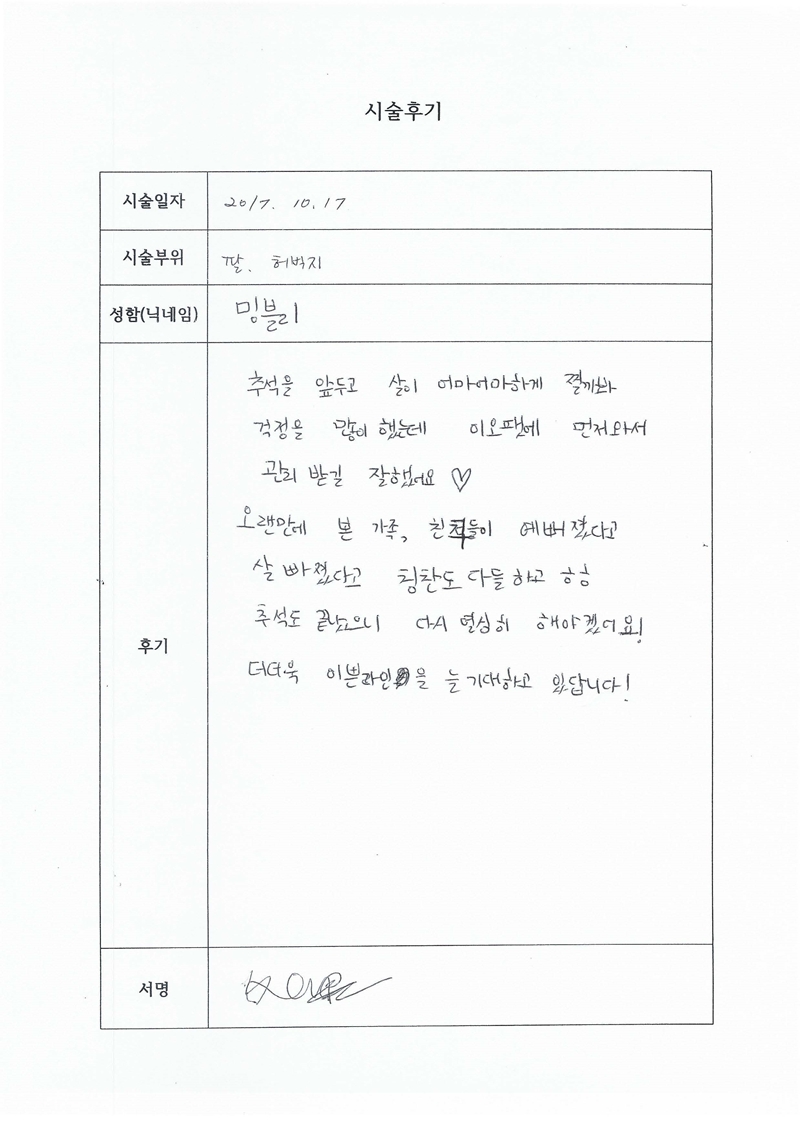 시술후기
시술일자 2017. 10. 17
시술부위 팔, 허벅지
성함(닉네임) 밍블리
추석을 앞두고 살이 어마어마하게 찔까봐
걱정을 많이 했는데 이오팻에 먼저와서
관리 받길 잘했어요 ♡
오랜만에 본 가족, 친척들이 예뻐졌다고
살 빠졌다고 칭찬도 다들하고 ㅎㅎ
추석도 끝났으니 다시 열심히 해야겠어요!
후기
더더욱 이쁜라인을 늘 기대하고 있답니다!
서명